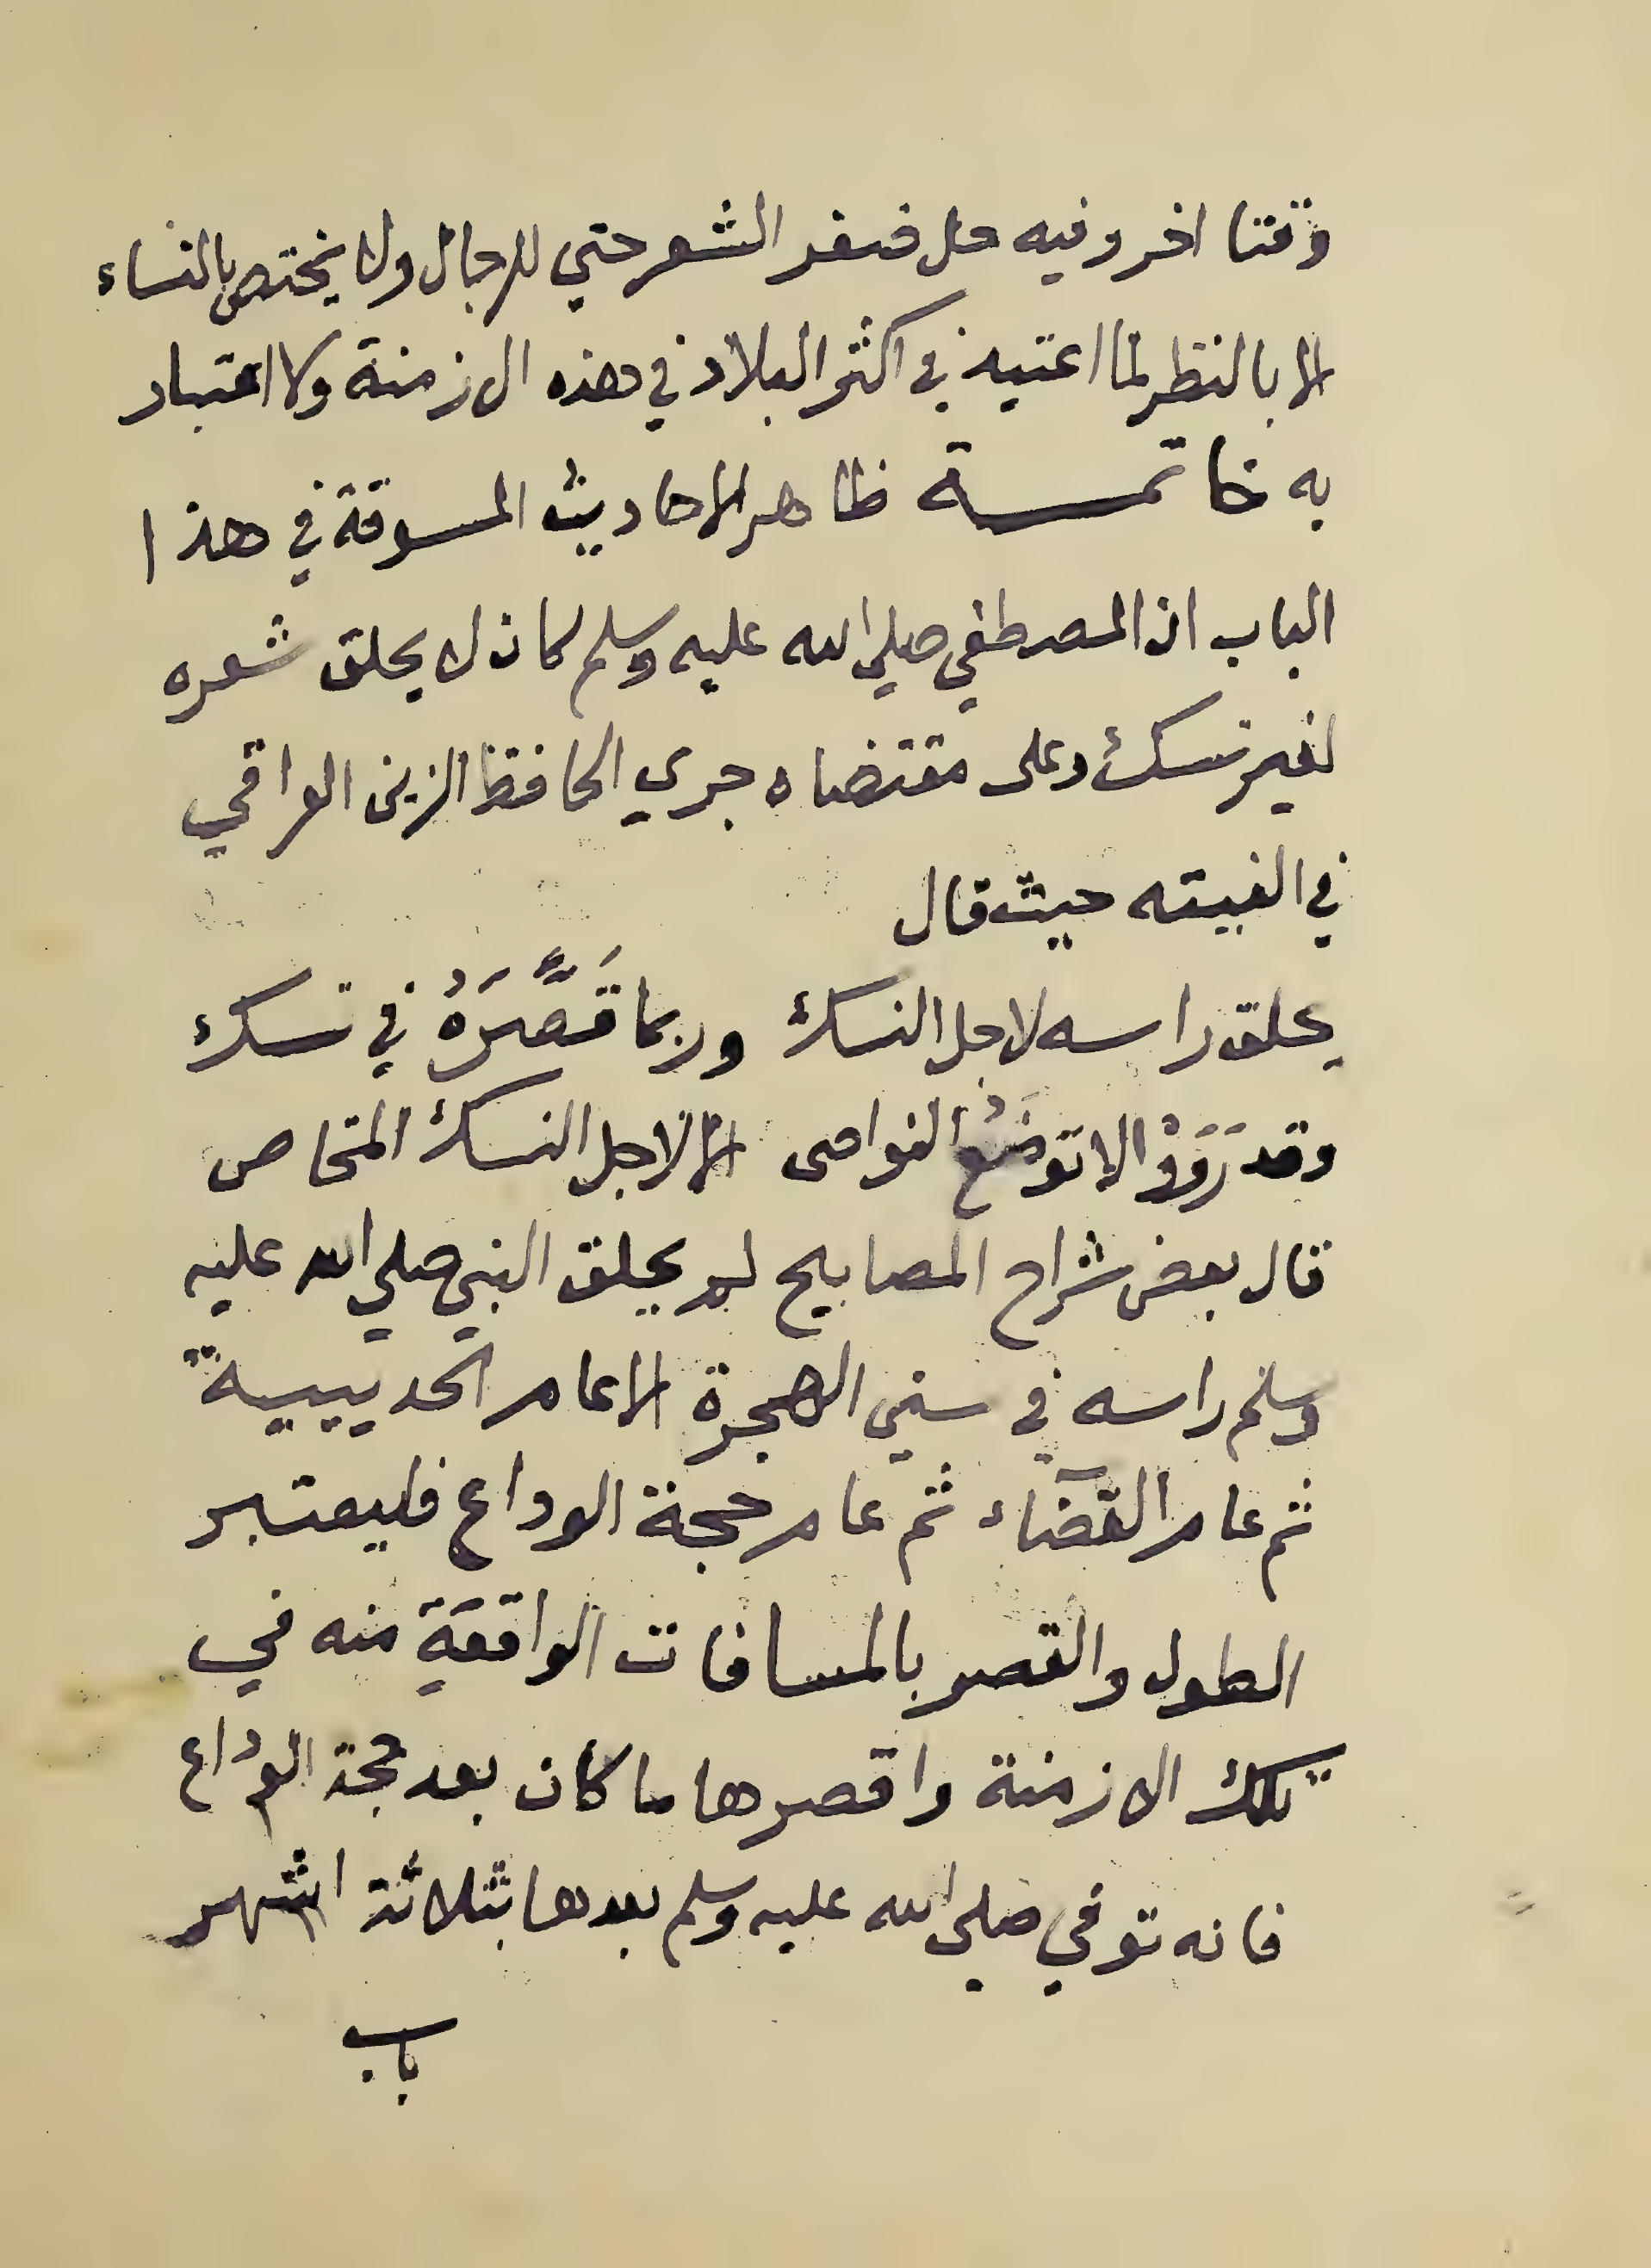 وقتا اخر وفيه حل ضفر الشعر حتي للرجال ولا يختص بالنساء
الا بالنظر لما اعتيد في اكثر البلاد في هذه الازمنة ولا اعتبار
به خاتمة ظاهر الاحاديث المسوقة في هذا
الباب ان المصطفي صلي الله عليه وسلم كان لا يحلق شعره
لغير نسك وعلى مقتضاه جري الحافظ الزين العراقي
في الفيته حيث قال
يحلق راسه لاجل النسك وربما قَصَّرَهُ في نسك
وقد رَوَوْا لا تُوضَعُ النواصى الا لاجل النسك المحاص
قال بعض شراح المصابيح لم يحلق النبي صلي الله عليه
وسلم راسه في سني الهجرة الا عام الحديبية
ثم عام القضآء ثم عام حجة الوداع فليعتبر
الطول والقصر بالمسافات الواقعة منه في
تلك الازمنة واقصرها ما كان بعد حجة الوداع
فانه توفي صلي الله عليه وسلم بعدها بثلاثة اشهر
باب